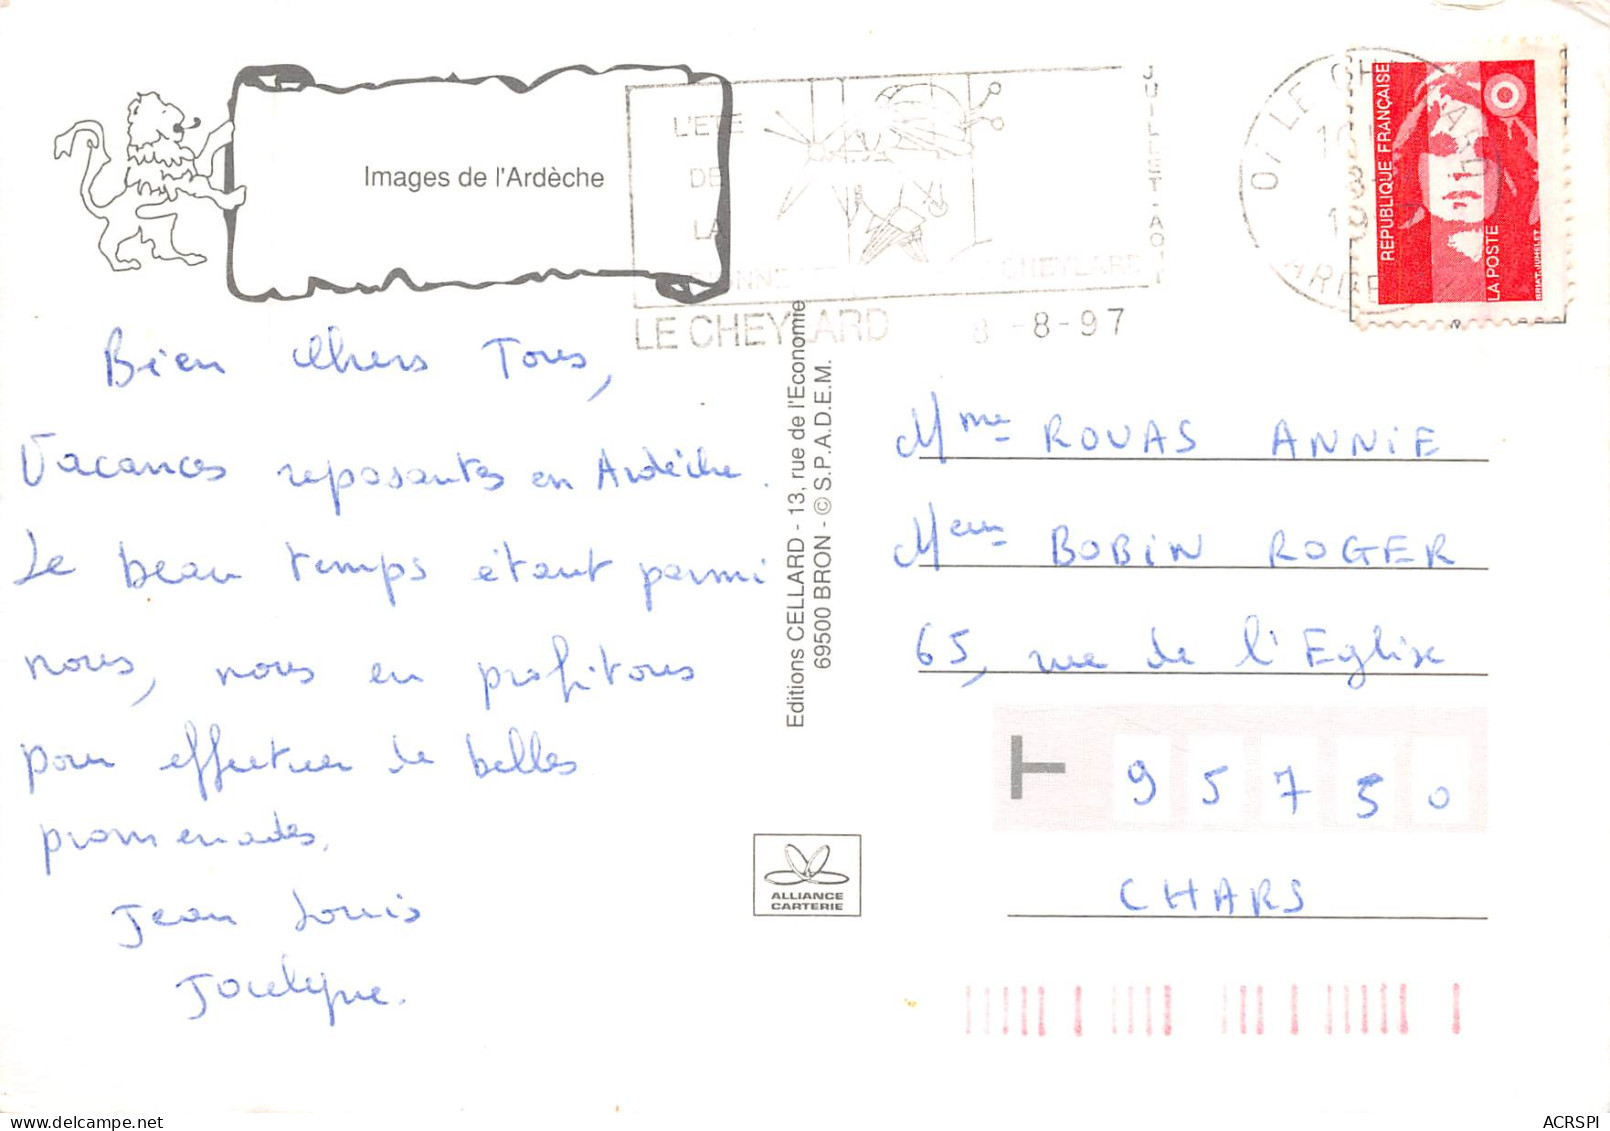 Images de l'Ardèche
L'ETE
DE
LA
CHEYLARD
JUILLET-AOUT
LE CHEYLARD 8-8-97
07 LE CHEYLARD
ARDECHE
REPUBLIQUE FRANÇAISE
LA POSTE
BRIAT-JUMELET
Bien chers Tous,
Vacances reposantes en Ardèche.
Le beau temps étant parmi
nous, nous en profitons
pour effectuer de belles
promenades.
Jean Louis
Jocelyne.
Editions CELLARD - 13, rue de l'Economie
69500 BRON - © S.P.A.D.E.M.
ALLIANCE
CARTERIE
Mme ROUAS ANNIE
Meur BOBIN ROGER
65, rue de l'Eglise
95750
CHARS
ACRSPI